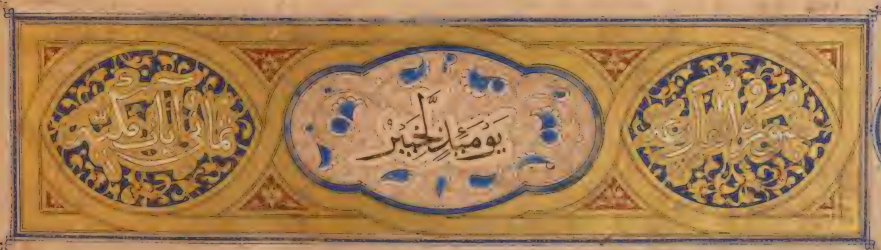 سورة القارعة يَوْمَئِذٍ لَّخَبِيْرٌ ثمان آيات مكية